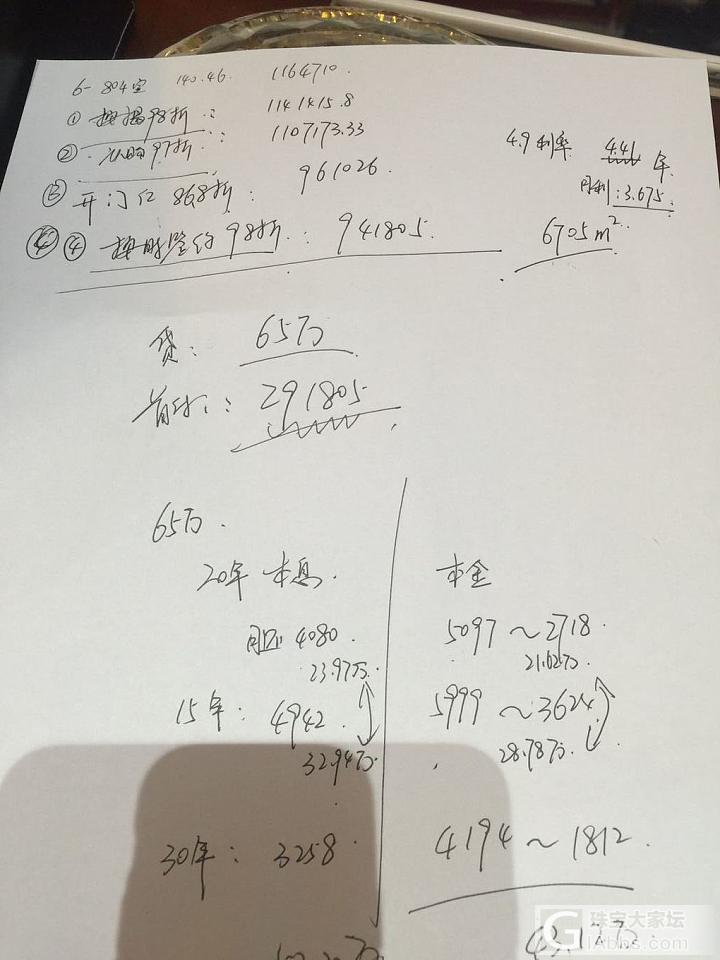 6-804室 140.46. 1164710.
① 按揭98折: 1141415.8
② 认购97折: 1107173.33
③ 开门红 86.8折: 961026.
④ ④ 按时签约98折: 941805.
4.9利率 4.41 年
月利:3.675
6705m²
贷: 65万
首付: 291805.
65万.
20年 本息. 本金
月还 4080. 5097~2718.
23.97万. 21.62万.
15年: 4942. 5999~3624
32.94万 28.78万.
30年: 3258. 4194~1812.
珠宝大家坛
Glabbs.com